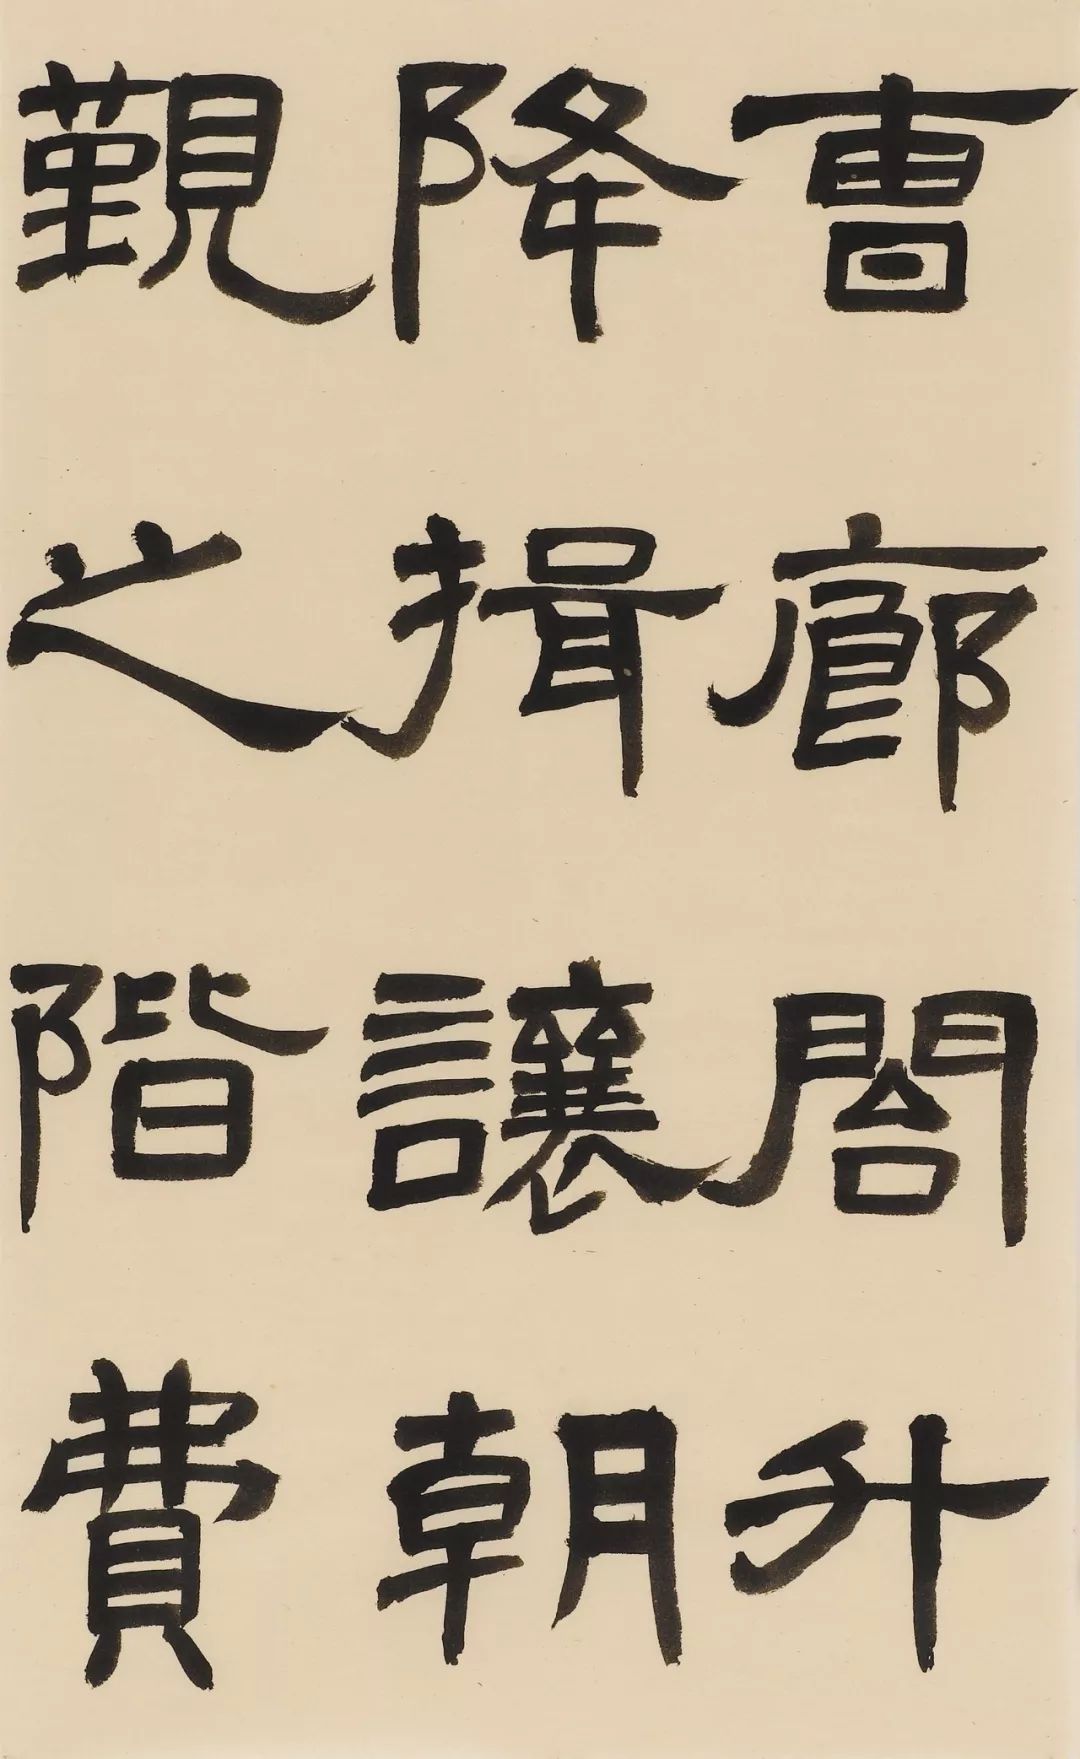 曺廊閤升
降揖讓朝
覲之階費